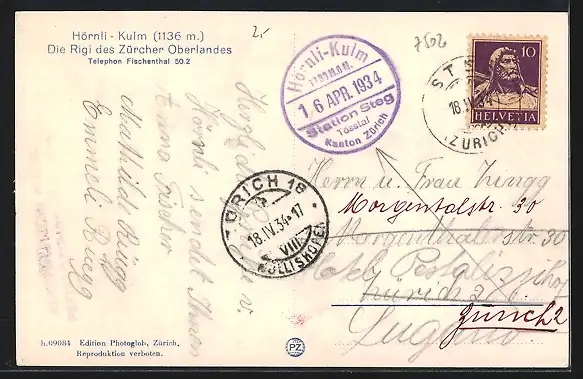 Hörnli - Kulm (1136 m.)
Die Rigi des Zürcher Oberlandes
Telephon Fischenthal 50.2
2.-
7502
Hörnli-Kulm
1133 M.ü.M.
16 APR. 1934
Station Steg
Tösstal
Kanton Zürich
10
HELVETIA
ST
18.IV.34
ZÜRICH
ZÜRICH 18
18.IV.34-17
VIII
WOLLISHOFEN
Hörnli sendet Ihnen
Anna Fischer
Mathilde Rüegg
Emmeli Rüegg
Herrn u. Frau Zingg
Morgentalstr. 30
Morgenthalerstr. 30
Hotel Pestalozzihof
Zürich 2
Zürich 2
Lugano
h.09084 Edition Photoglob, Zürich.
Reproduktion verboten.
PZ